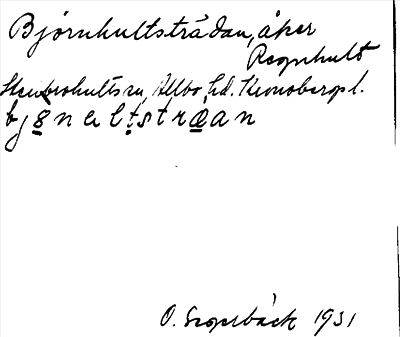 Björnhultsträdan, åker
Ragnhult
Stenbrohults sn, Allbo hd. Kronobergs l.
bjönaltsträan
O. Sagerbäck 1931